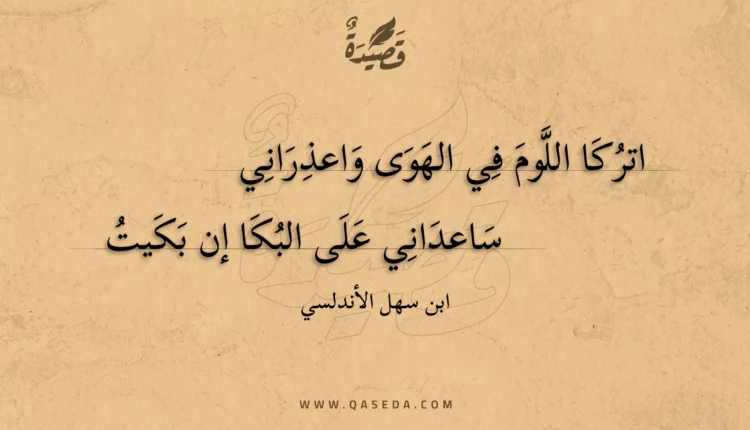 قَصِيدَةٌ
اترُكَا اللَّومَ فِي الهَوَى وَاعذِرَانِي
سَاعدَانِي عَلَى البُكَا إن بَكَيتُ
ابن سهل الأندلسي
WWW.QASEDA.COM